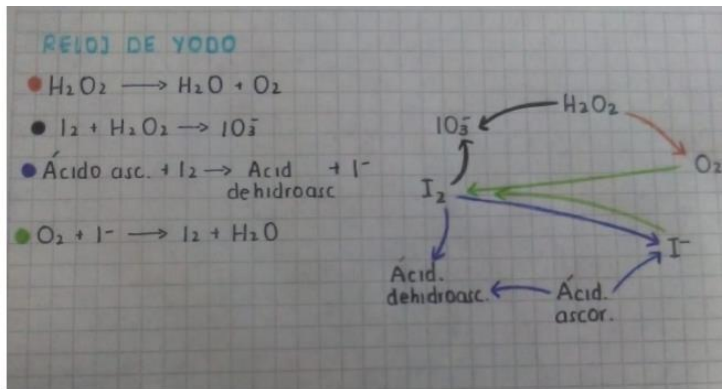 RELOJ DE YODO
H₂O₂ → H₂O + O₂
I₂ + H₂O₂ → IO₃⁻
Ácido asc. + I₂ → Acid dehidroasc + I⁻
O₂ + I⁻ → I₂ + H₂O
H₂O₂
IO₃⁻
O₂
I₂
I⁻
Ácid.
dehidroasc.
Ácid.
ascor.